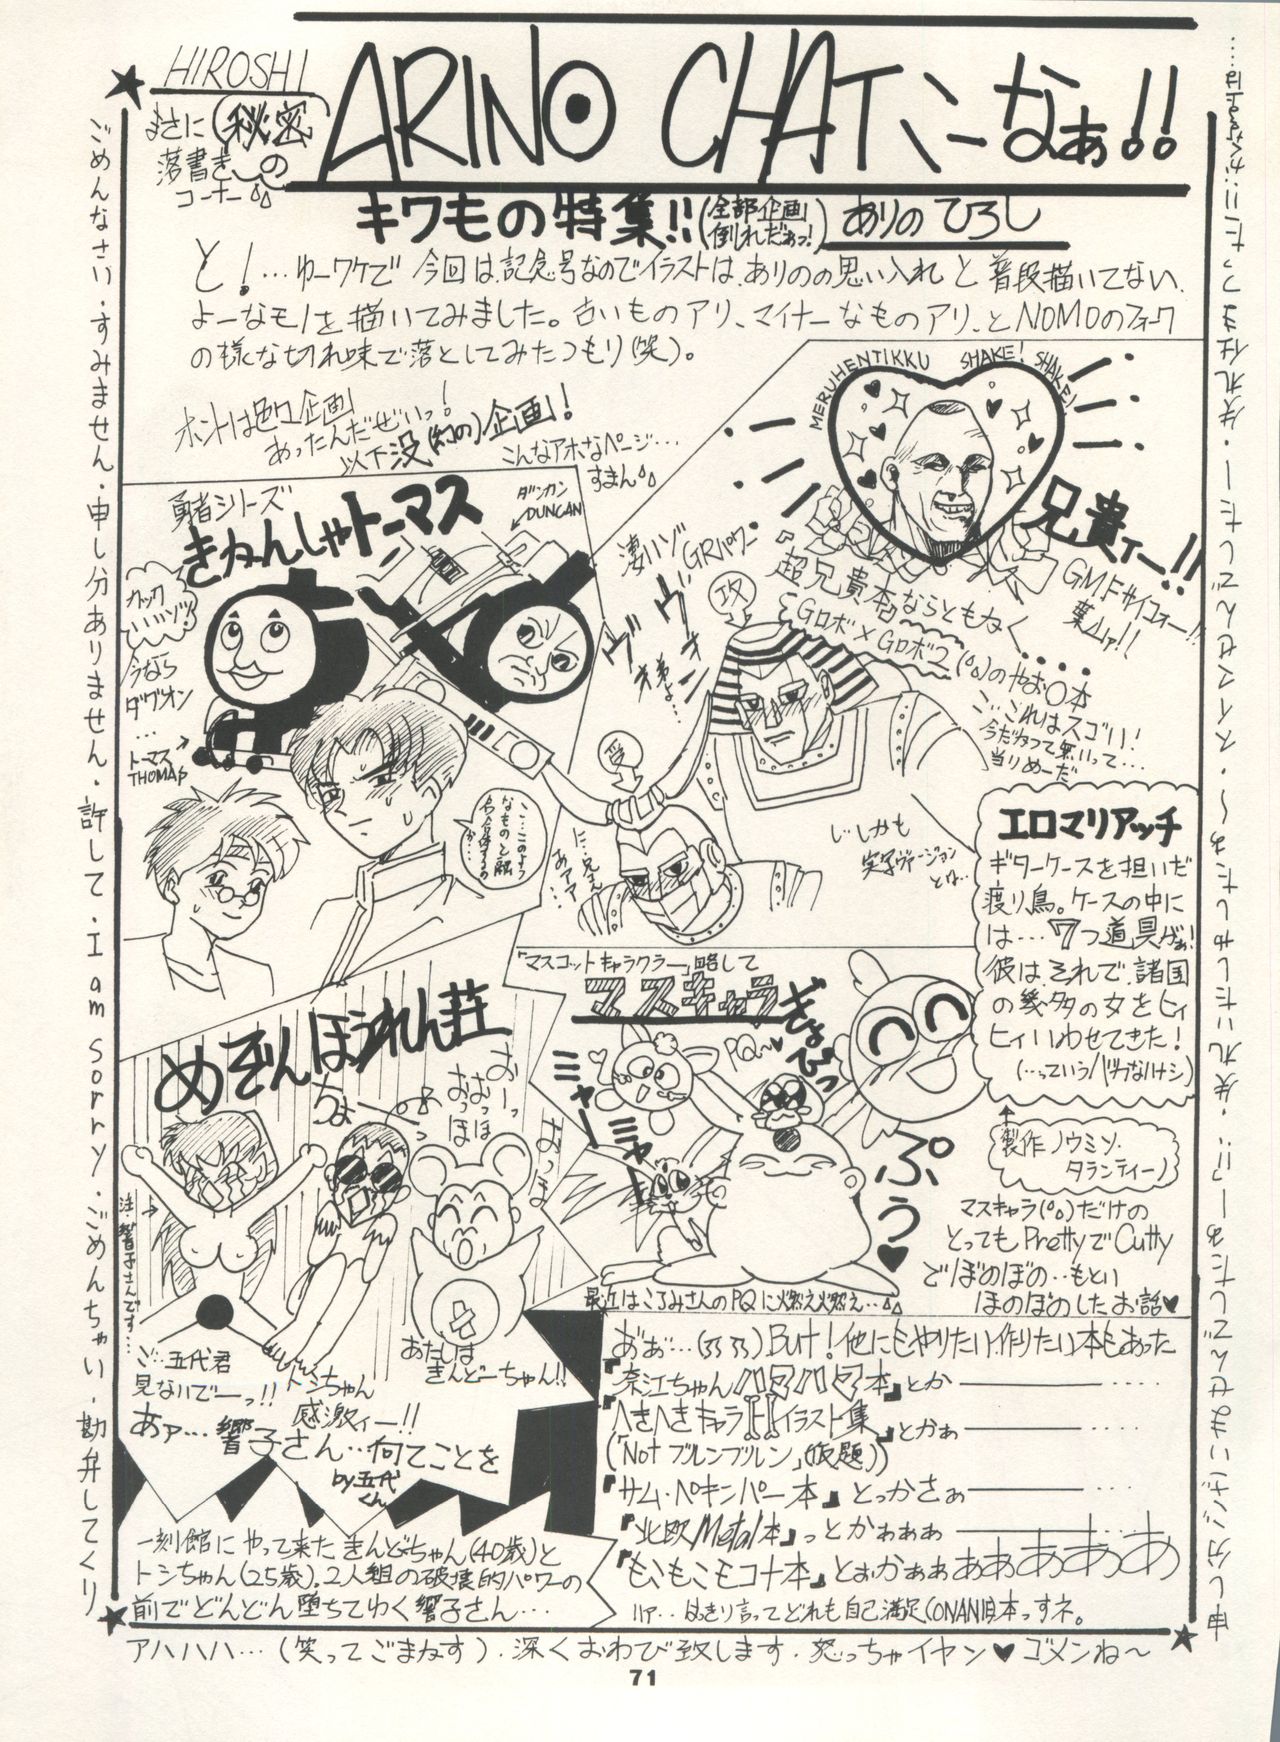 HIROSHI
ARINO CHATこーなぁ!!
まさに秘密の
落書き
コーナー
キワもの特集!!(全部企画倒れだぁっ!)ありのひろし
と!…ゆーワケで今回は、記念号なのでイラストは、ありのの思い入れと普段描いてない、
よーなモノを描いてみました。古いものアリ、マイナーなものアリ、とNOMOのフォーク
の様な切れ味で落としてみたつもり(笑)。
ホントは色々企画
あったんだぜいっ!
以下没(幻の)企画!
こんなアホなページ…
すまん
MERUHENTIKKU SHAKE! SHAKE!
兄貴ィー!!
GMFサイコォー!!
葉ムァ!!
勇者シリーズ
きかんしゃトーマス
ダンカン
DUNCAN
カックいいゾ!
今なら
ダグオン
…
トーマス
THOMAS
こ…このオレ
凄いゾ
GRパワー
『超兄貴本』ならともなく
Gロボ×Gロボ2
のやお〇本
こ…これはスゴい!
今だかつて無いって…
当りめーだ
攻
受
に…兄さん
あァァ…
じ…しかも
実写ヴァージョン
とは…
エロマリアッチ
ギターケースを担いだ
渡り鳥。ケースの中に
は…7つ道具がぁ!
彼は、それで、諸国
の幾多の女をヒィ
ヒィいわせてきた!
(…っていうバカなハナシ)
製作ノウミソ・
タランティーノ
「マスコットキャラクラー」略して
マスキャラ
ぎょぴっ
PQ〜
ミャーミャー
ぷぅ♥
マスキャラだけの
とってもPrettyでCutty
でぼのぼの…もとい
ほのぼのしたお話♥
最近はころみさんのPQに燃え燃え…
めぞんほうれん荘
ちょ
おーっ
おっほ
注・響子さんです…
ご…五代君
見ないでーっ!!
トシちゃん
感激ィー!!
あたしは
きんどーちゃん!!
あァ…響子さん…何てことを
by五代くん
一刻館にやって来たきんどーちゃん(40歳)と
トシちゃん(25歳)。2人組の破壊的パワーの
前でどんどん堕ちてゆく響子さん…
おぉ…But!他にもやりたい、作りたい本もあった
『奈江ちゃんハァハァ本』とか
『へきへきキャライラスト集』とかぁ
(「Notブルンブルン」(仮題))
『サム・ペキンパー本』とっかさぁ
『北欧Metal本』っとかぁぁぁ
『もこもこモコナ本』とぉかぁぁぁあぁあぁあ
ハァ…はっきり言ってどれも自己満足(ONANI)本っすネ。
ごめんなさい・すみません・申し分ありません・許して・I am sorry・ごめんちゃい・勘弁してくり
アハハハ…(笑ってごまかす)・深くおわび致します・怒っちゃイヤン♥ゴメンね〜
71